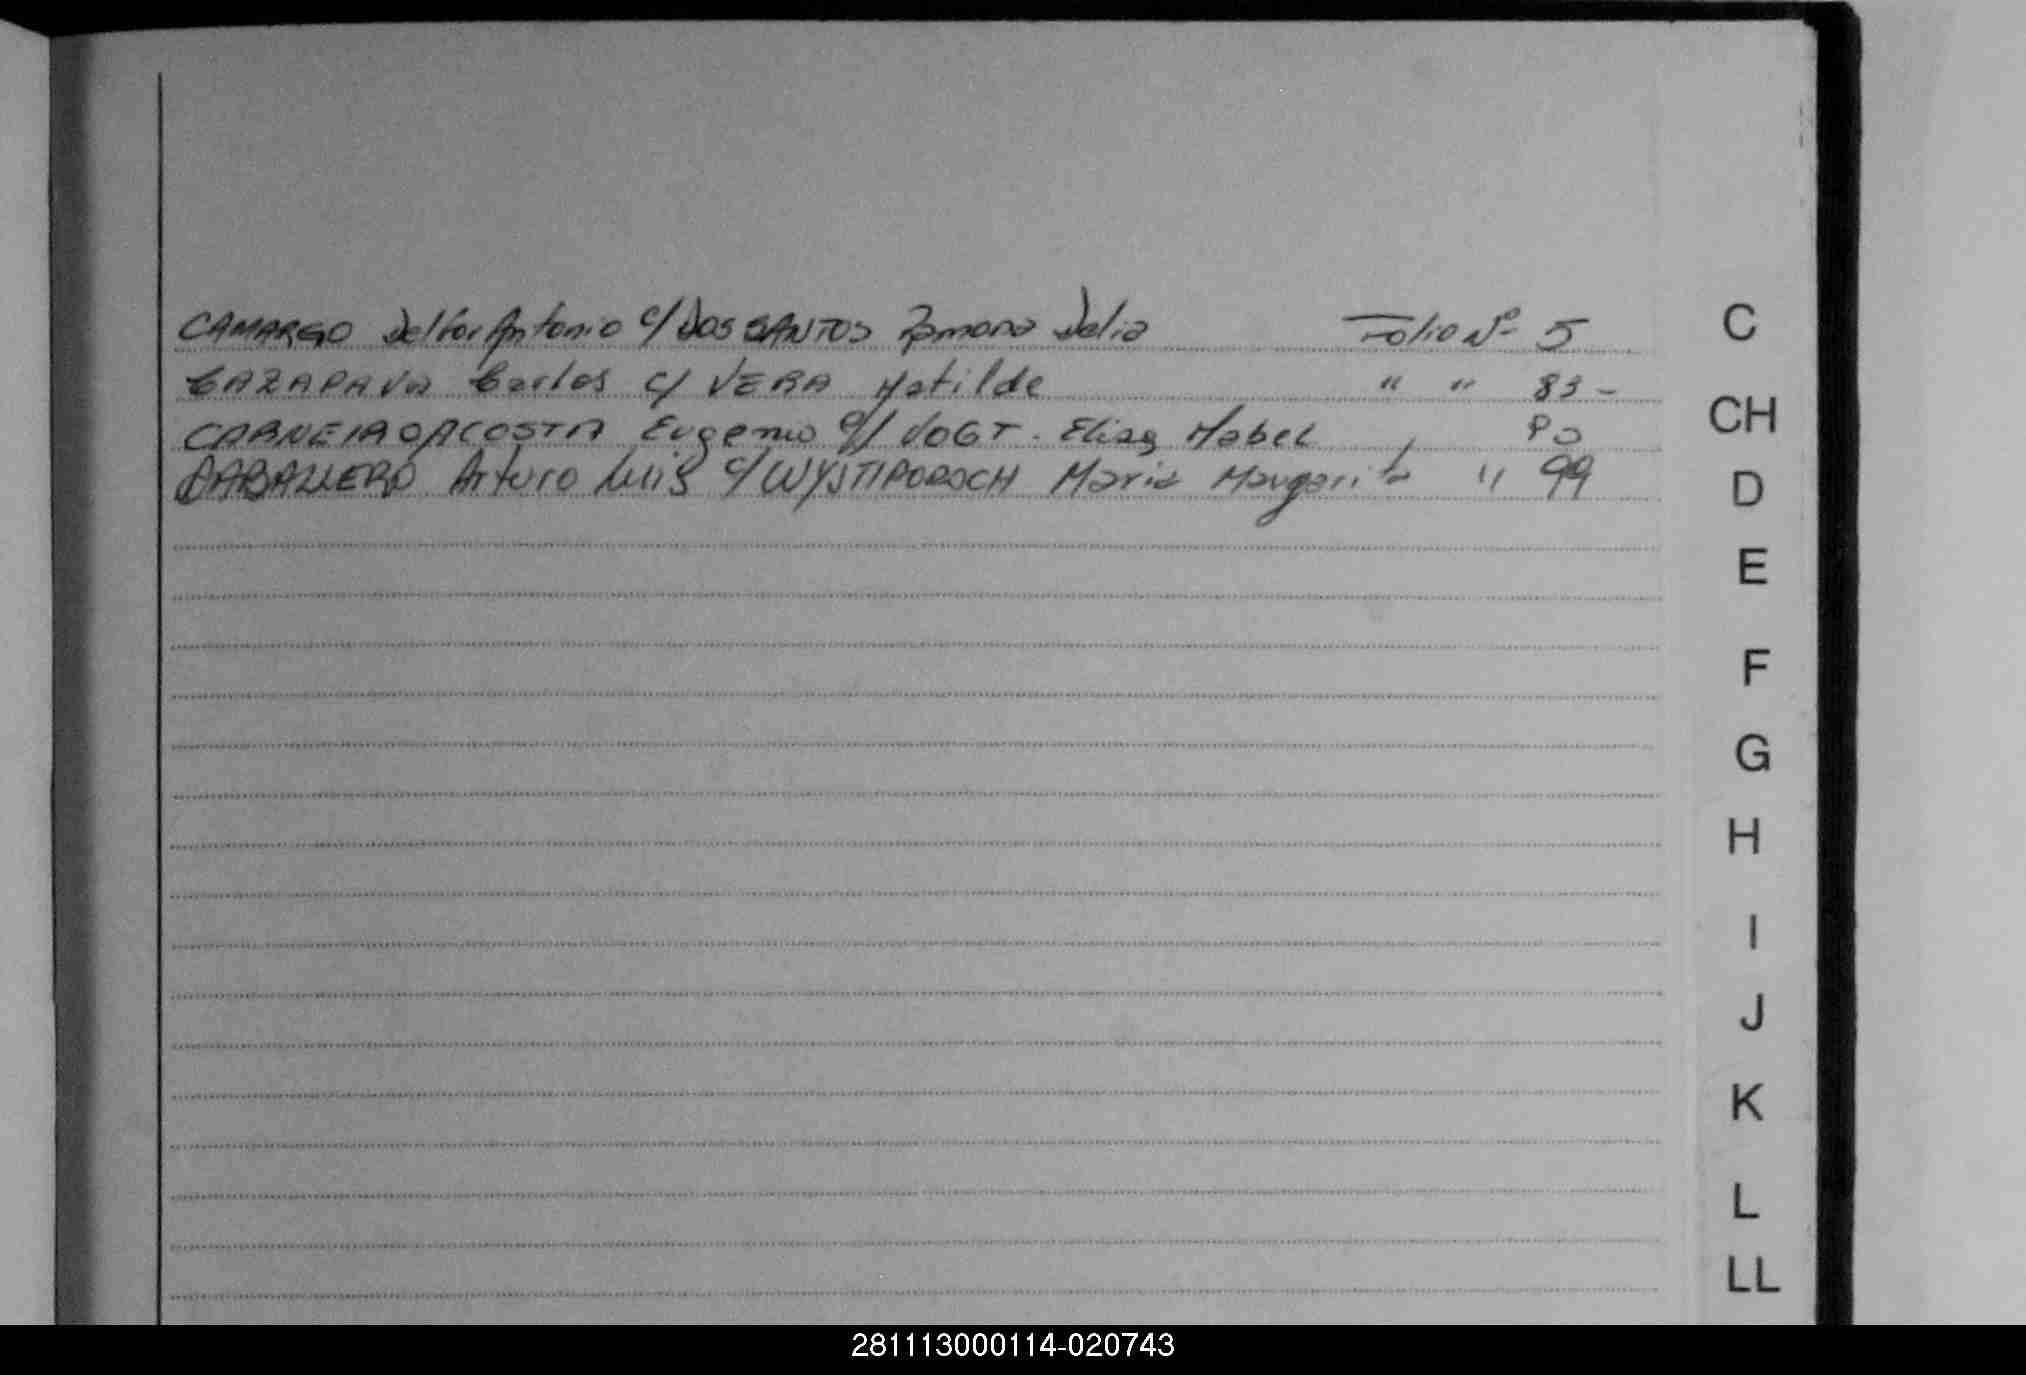 CAMARGO Delfor Antonio c/ DOS SANTOS Ramona Delia Folio Nº 5
CAZAPAVA Carlos c/ VERA Matilde " " 83 -
CARNEIRO ACOSTA Eugenio c/ VOGT. Elisa Mabel
CABALLERO Arturo Luis c/ WYSTIPOROCH Maria Margarita " 99
C
CH
D
E
F
G
H
I
J
K
L
LL
281113000114-020743